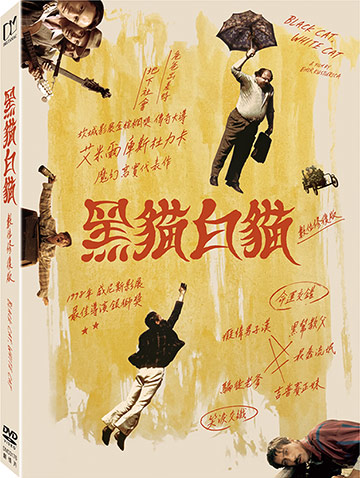 BLACK CAT,
WHITE CAT
A FILM BY
EMIR KUSTURICA
危危出差好
地下社會
坎城影展金棕櫚獎 傳奇大導
艾米爾庫斯杜力卡
魔幻寫實代表作
黑貓白貓
數位修復版
1998年 威尼斯影展
最佳導演銀獅獎
★ ★
命運交錯
黑幫教父
雄偉男子漢
最吉
騙徒老爹
吉普賽正妹
笑淚交織
黑貓白貓
數位修復版
BLACK CAT, WHITE CAT
DVD
VIDEO